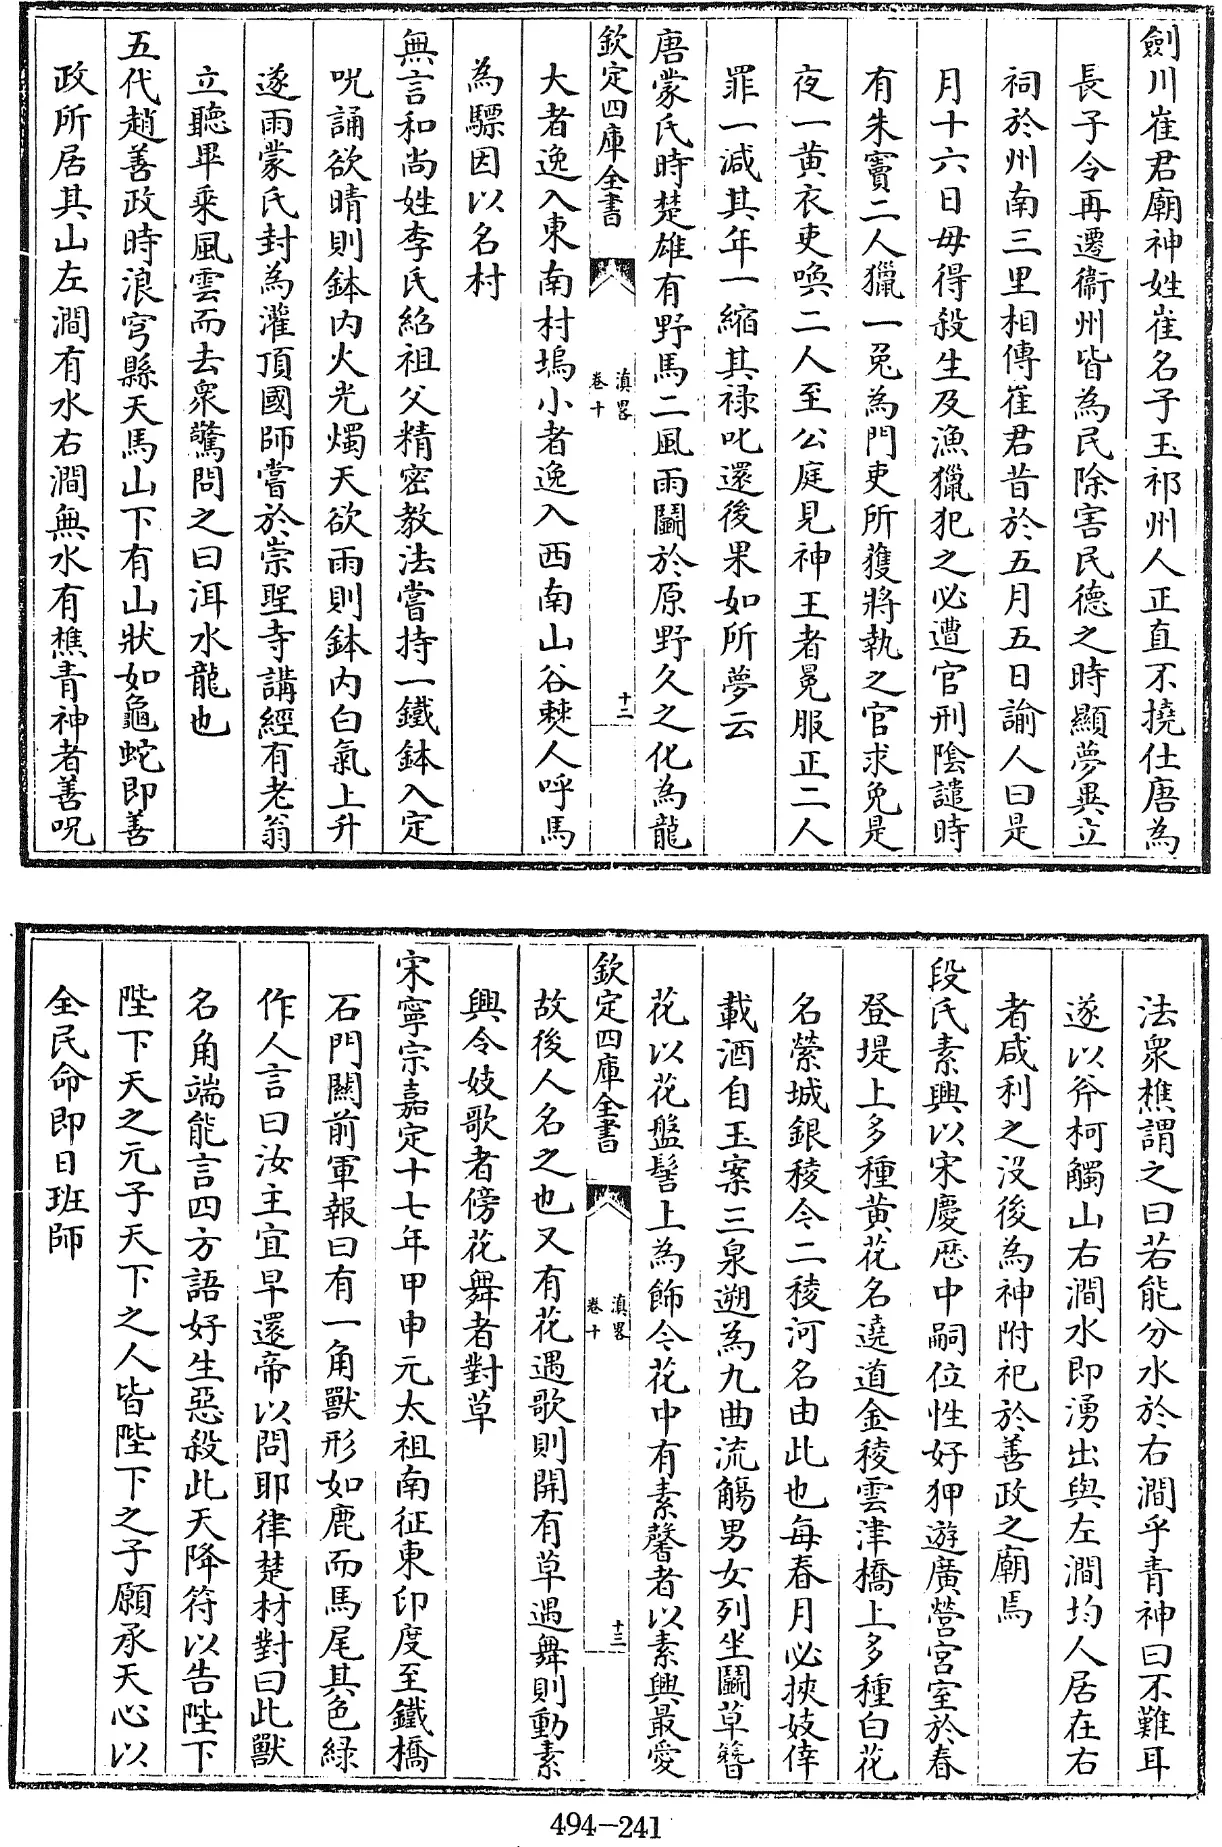 劍川崔君廟神姓崔名子玉祁州人正直不撓仕唐為
長子令再遷衞州皆為民除害民德之時顯夢異立
祠於州南三里相傳崔君昔於五月五日諭人曰是
月十六日毋得殺生及漁獵犯之必遭官刑陰譴時
有朱竇二人獵一兎為門吏所獲將執之官求免是
夜一黄衣吏喚二人至公庭見神王者冕服正二人
罪一減其年一縮其禄叱還後果如所夢云
唐蒙氏時楚雄有野馬二風雨鬭於原野久之化為龍
欽定四庫全書
滇畧
卷十
十二
大者逸入東南村塢小者逸入西南山谷僰人呼馬
為驃因以名村
無言和尚姓李氏紹祖父精密教法嘗持一鐵鉢入定
呪誦欲晴則鉢内火光燭天欲雨則鉢内白氣上升
遂雨蒙氏封為灌頂國師嘗於崇聖寺講經有老翁
立聽畢乘風雲而去衆驚問之曰洱水龍也
五代趙善政時浪穹縣天馬山下有山狀如龜蛇即善
政所居其山左澗有水右澗無水有樵青神者善呪
法衆樵謂之曰若能分水於右澗乎青神曰不難耳
遂以斧柯觸山右澗水即湧出與左澗均人居在右
者咸利之没後為神附祀於善政之廟焉
段氏素興以宋慶厯中嗣位性好狎遊廣營宮室於春
登堤上多種黄花名遶道金稜雲津橋上多種白花
名縈城銀稜今二稜河名由此也每春月必挾妓倖
載酒自玉案三泉遡為九曲流觴男女列坐鬭草簪
花以花盤髻上為飾令花中有素馨者以素興最愛
欽定四庫全書
滇畧
卷十
十三
故後人名之也又有花遇歌則開有草遇舞則動素
興令妓歌者傍花舞者對草
宋寧宗嘉定十七年甲申元太祖南征東印度至鐵橋
石門關前軍報曰有一角獸形如鹿而馬尾其色緑
作人言曰汝主宜早還帝以問耶律楚材對曰此獸
名角端能言四方語好生惡殺此天降符以告陛下
陛下天之元子天下之人皆陛下之子願承天心以
全民命即日班師
494-241